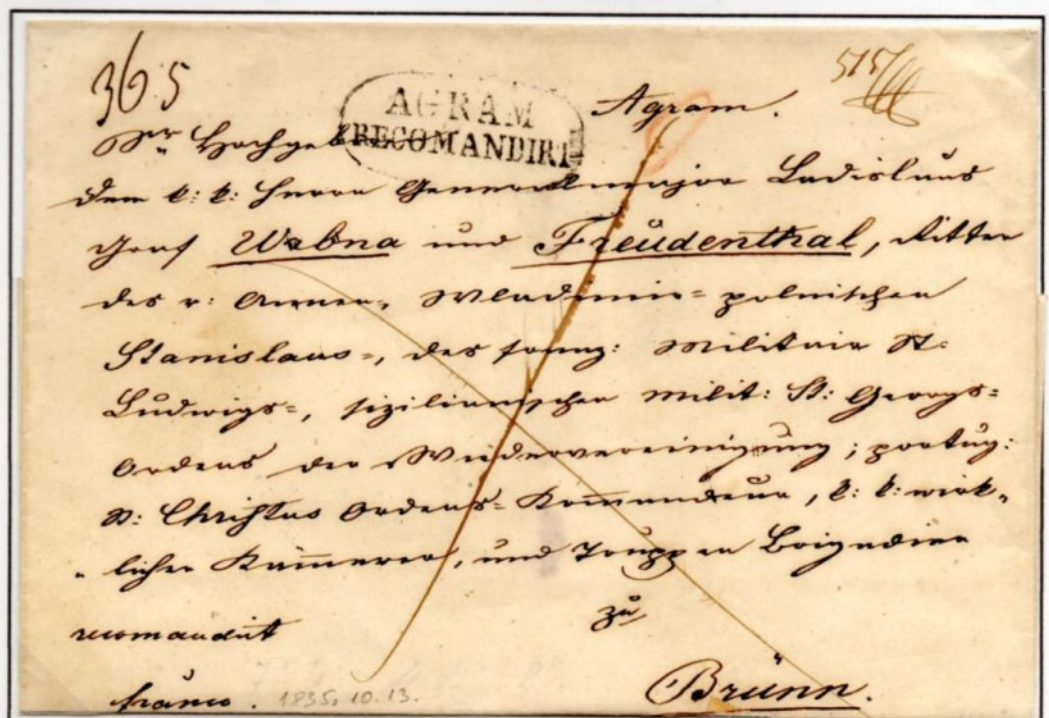 365
515
AGRAM
RECOMANDIRT
Agram.
Sr Hochgeb
dem k: k: Herrn Generalmajor Ladislaus
Graf Wrbna und Freudenthal, Ritter
des r: Annen-, Wladimir= polnischen
Stanislaus=, des franz: Militair St:
Ludwigs=, sizilianischen Milit: St: Georgs=
Ordens der Wiedervereinigung; portug:
St: Christus Ordens= Kommandeur, k: k: wirk„
„ licher Kämmerer, und Truppen Brigadier
recomandirt
zu
franco.
1835, 10. 13.
Brünn.